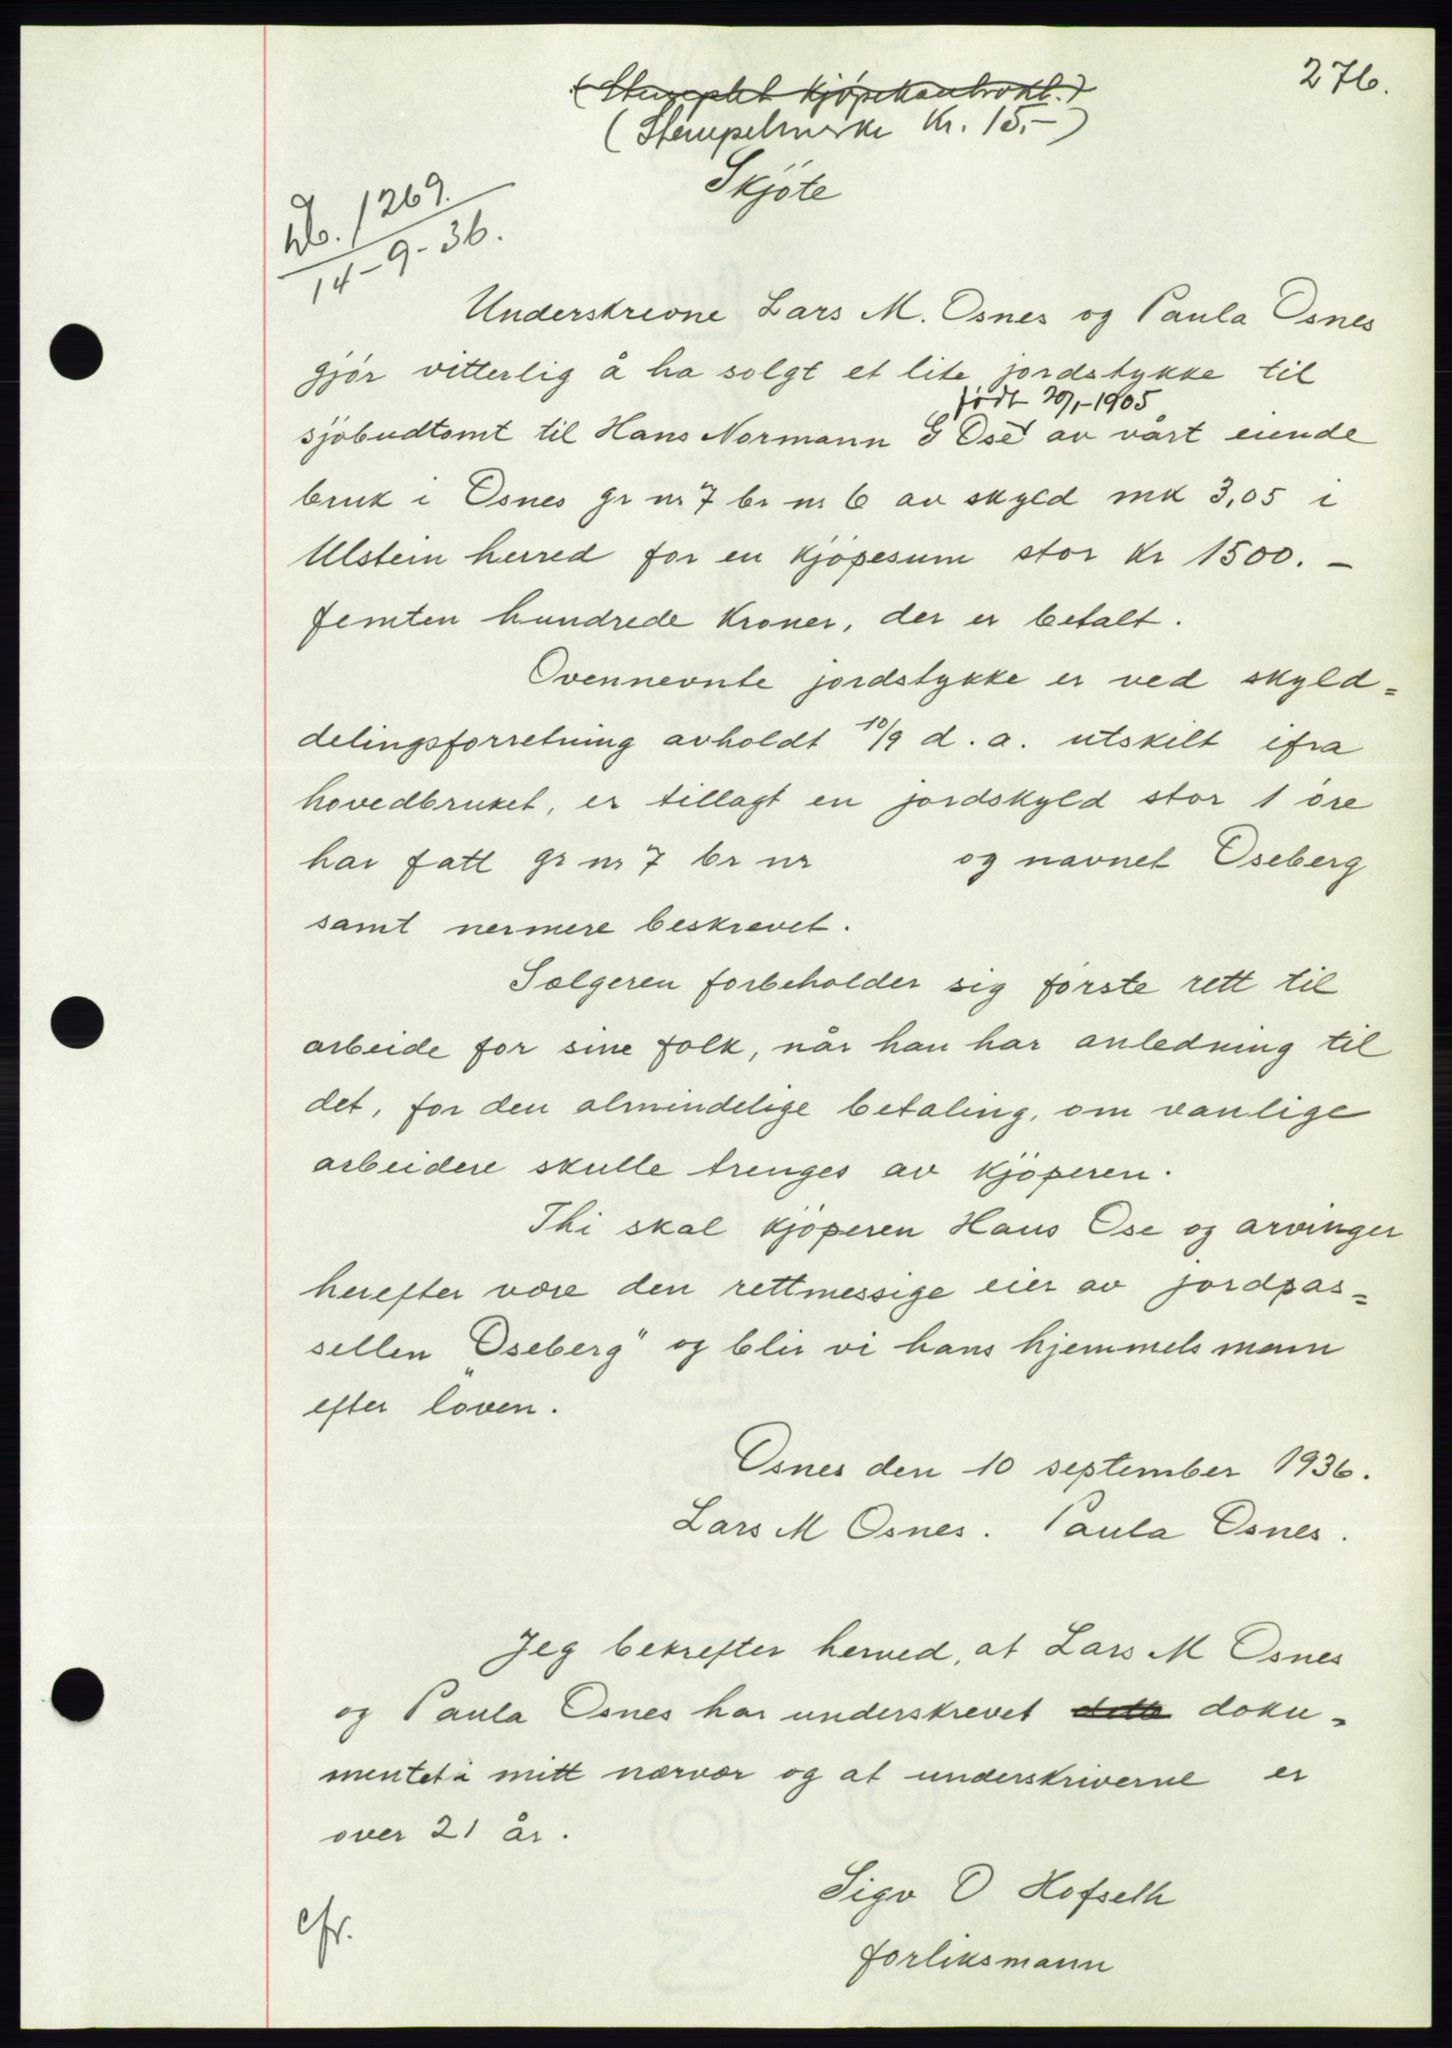 276.
(Stemplet kjøpekontrakt.)
(Stempelmerke kr. 15,-)
Skjöte
Db. 1269.
14-9-36.
Underskrevne Lars M. Osnes og Paula Osnes
gjör vitterlig å ha solgt et lite jordstykke til
født 20/1-1905
sjöbudtomt til Hans Normann G Ose av vårt eiende
bruk i Osnes gr nr 7 br nr 6 av skyld mk 3,05 i
Ulstein herred for en kjöpesum stor kr 1500. -
femten hundrede kroner, der er betalt.
Ovennevnte jordstykke er ved skyld=
delingsforretning avholdt 10/9 d. a. utskilt ifra
hovedbruket, er tillagt en jordskyld stor 1 öre
har fatt gr nr 7 br nr og navnet Oseberg
samt nermere beskrevet.
Sælgeren forbeholder sig förste rett til
arbeide for sine folk, når han har anledning til
det, for den almindelige betaling, om vanlige
arbeidere skulle trenges av kjöperen.
Thi skal kjöperen Hans Ose og arvinger
herefter være den rettmessige eier av jordpar=
sellen "Oseberg" og blir vi hans hjemmels menn
efter loven.
Osnes den 10 september 1936.
Lars M Osnes. Paula Osnes.
Jeg bekrefter herved, at Lars M Osnes
og Paula Osnes har underskrevet dette doku=
mentet i mitt nærvær og at underskriverne er
over 21 år.
Sigv O Hofseth
forliksmann
cfr.